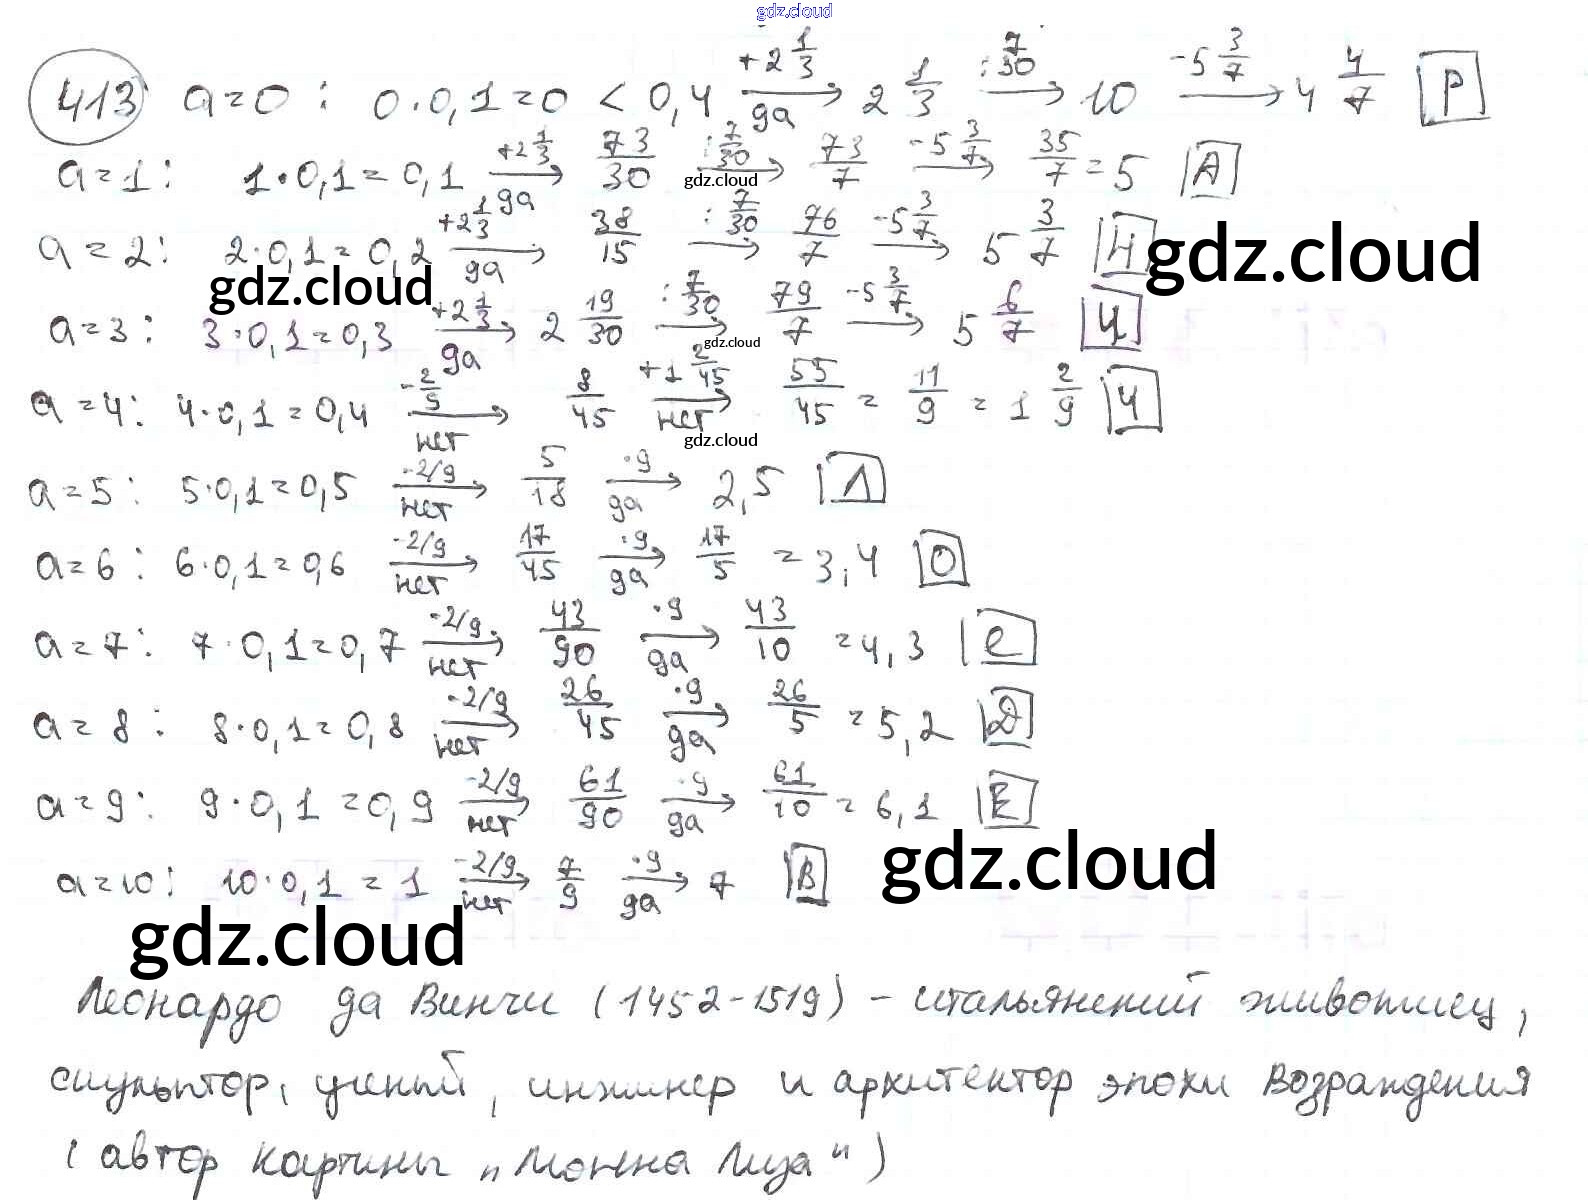 gdz.cloud
413 a=0 : 0·0,1=0 < 0,4 +2 1/3 да 2 1/3 : 7/30 10 -5 3/7 4 4/7 Р
a=1: 1·0,1=0,1 +2 1/3 да 73/30 : 7/30 73/7 -5 3/7 35/7 = 5 А
gdz.cloud
a=2: 2·0,1=0,2 +2 1/3 да 38/15 : 7/30 76/7 -5 3/7 5 3/7 Н
gdz.cloud gdz.cloud
a=3: 3·0,1=0,3 +2 1/3 да 2 19/30 : 7/30 79/7 -5 3/7 5 6/7 И
gdz.cloud
a=4: 4·0,1=0,4 -2/5 нет 8/45 +1 2/45 нет 55/45 = 11/9 = 1 2/9 Ч
gdz.cloud
a=5: 5·0,1=0,5 -2/9 нет 5/18 ·9 да 2,5 Л
a=6: 6·0,1=0,6 -2/9 нет 17/45 ·9 да 17/5 = 3,4 О
a=7: 7·0,1=0,7 -2/9 нет 43/90 ·9 да 43/10 = 4,3 С
a=8: 8·0,1=0,8 -2/9 нет 26/45 ·9 да 26/5 = 5,2 Д
a=9: 9·0,1=0,9 -2/9 нет 61/90 ·9 да 61/10 = 6,1 Е
gdz.cloud
a=10: 10·0,1=1 -2/9 нет 7/9 ·9 да 7 В
gdz.cloud
Леонардо да Винчи (1452-1519) - итальянский живописец,
скульптор, ученый, инженер и архитектор эпохи Возраждения
(автор картины „Монна Лиза")